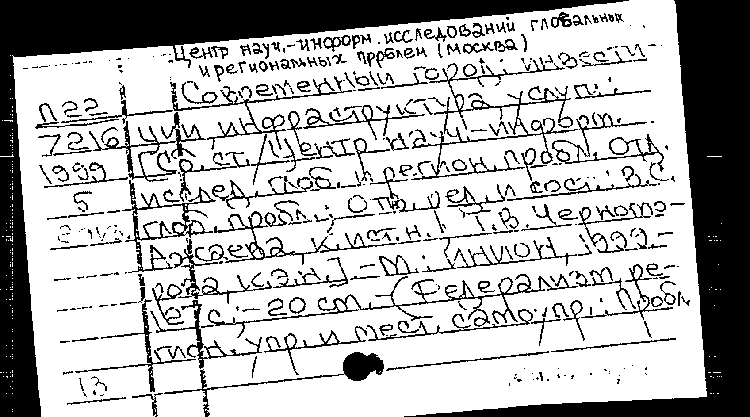 Центр науч.-информ. исследований глобальных
и региональных проблем (Москва)
Современный город: инвести-
П22
7216 ции, инфраструктура, услуги:
1999 [Сб. ст. / Центр науч.-информ.
5 исслед. глоб. и регион. пробл. Отд.
глоб. пробл.; Отв. ред. и сост.: В.С.
Ажаева, к.ист.н., Т.В. Черномо-
рова, к.э.н.]. - М.: ИНИОН, 1999.-
с.; - 20 см. - (Федерализм, ре-
гион. упр. и мест. самоупр.: Пробл.
13